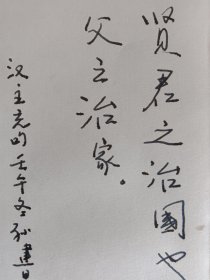 贤君之治國也
父之治家。
汉王充壬午冬孙建